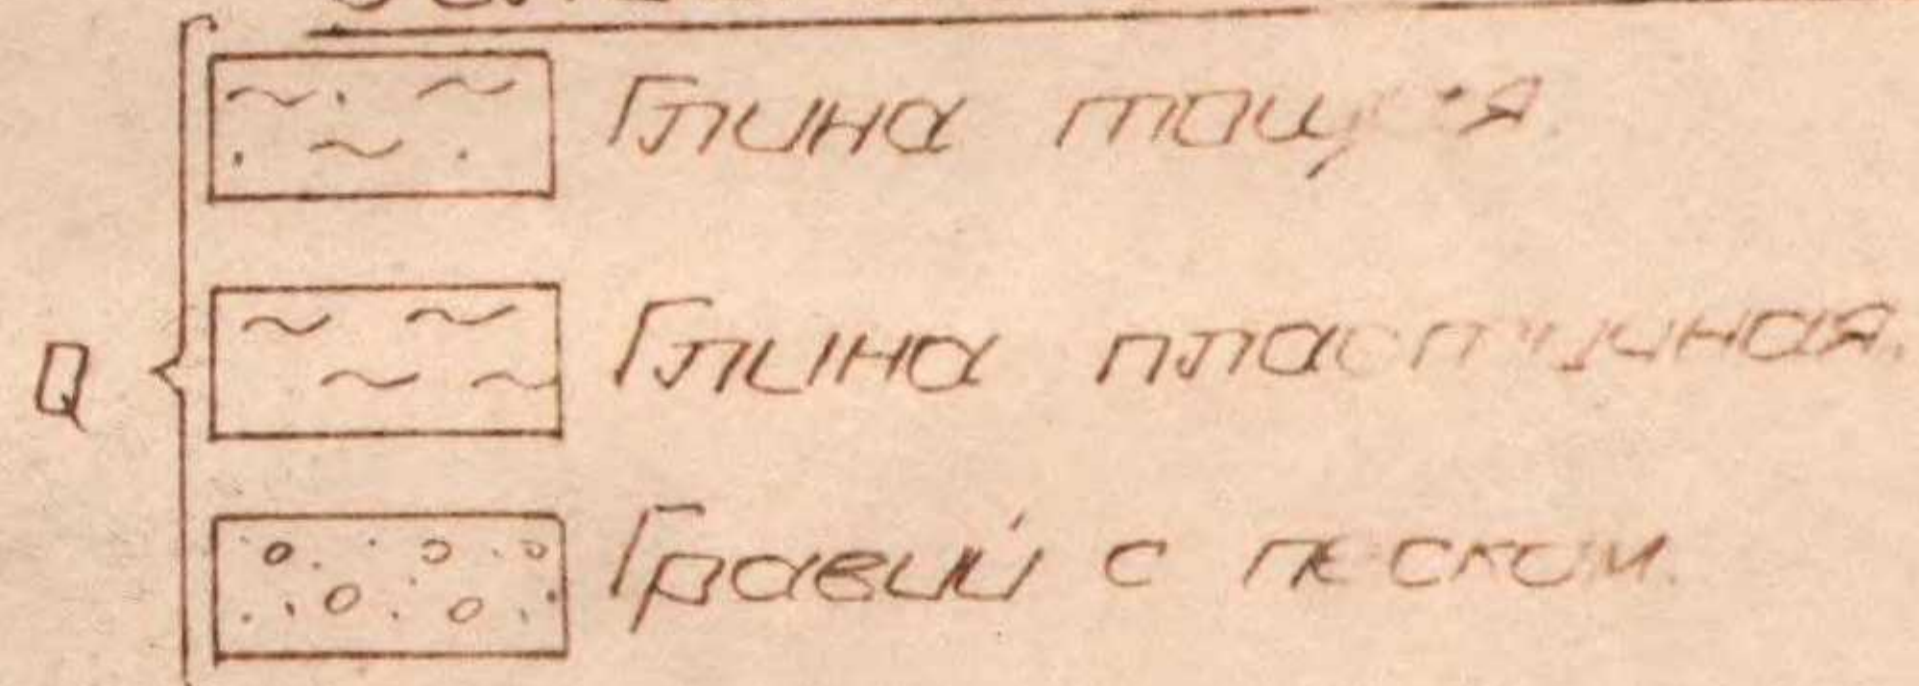 Глина тощая.
Глина пластичная.
Q
Гравий с песком.